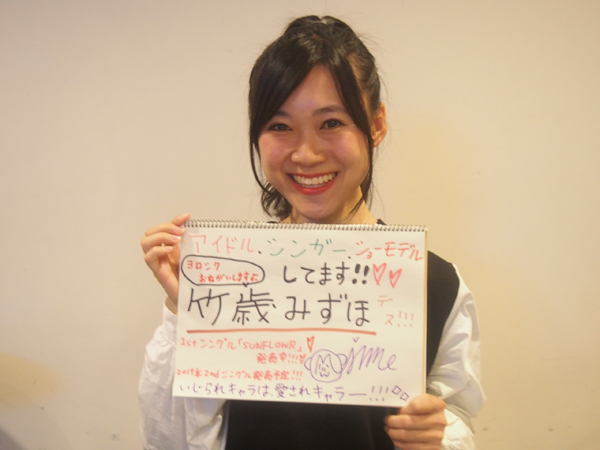 アイドル、シンガー、ショーモデル
ヨロシク
おねがいしますよ
してます!!
竹歳みずほ
デス!!!
1stシングル「SUNFLOWR」
発売中!!!
2ndシングル発売予定!!!
いじられキャラは、愛されキャラー!!!